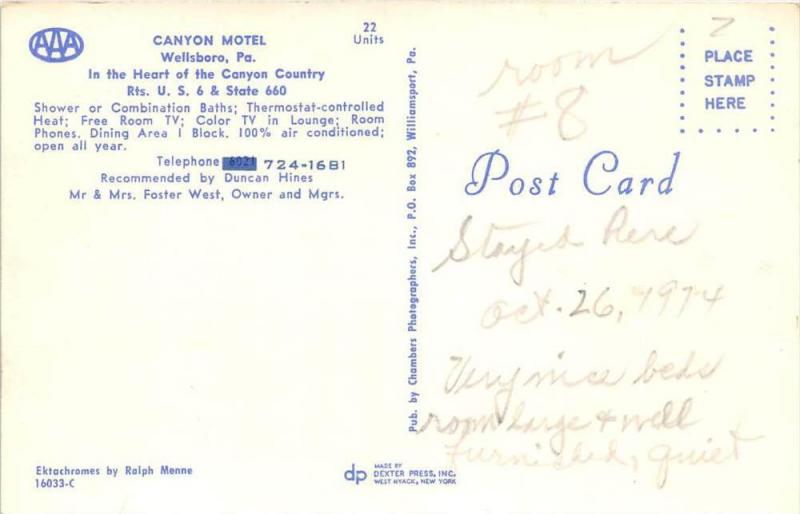 AAA
CANYON MOTEL
22
Units
Wellsboro, Pa.
In the Heart of the Canyon Country
Rts. U. S. 6 & State 660
Shower or Combination Baths; Thermostat-controlled
Heat; Free Room TV; Color TV in Lounge; Room
Phones. Dining Area 1 Block. 100% air conditioned;
open all year.
Telephone 6021 724-1681
Recommended by Duncan Hines
Mr & Mrs. Foster West, Owner and Mgrs.
Ektachromes by Ralph Menne
16033-C
Pub. by Chambers Photographers, Inc., P.O. Box 892, Williamsport, Pa.
dp
MADE BY
DEXTER PRESS, INC.
WEST NYACK, NEW YORK
7
PLACE
STAMP
HERE
room
#8
Post Card
Stayed Here
Oct. 26, 1974
Very nice beds
room large & well
furnished, quiet